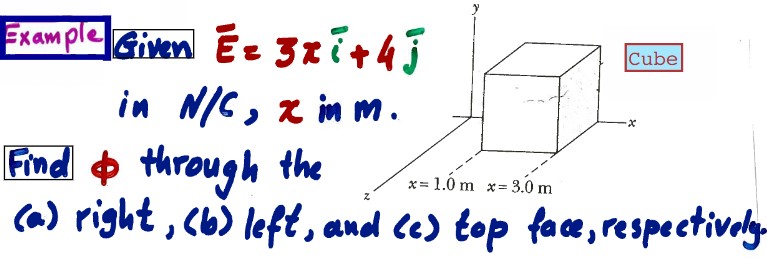 Example Given E̅ = 3x i̅ + 4 j̅
in N/C, x in m.
Find ϕ through the
(a) right, (b) left, and (c) top face, respectively.
y
Cube
x
z
x = 1.0 m x = 3.0 m